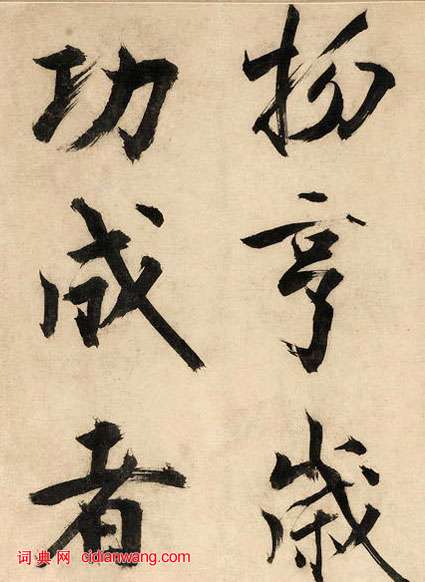 物亨歲
功成者
词典网 cidianwang.com